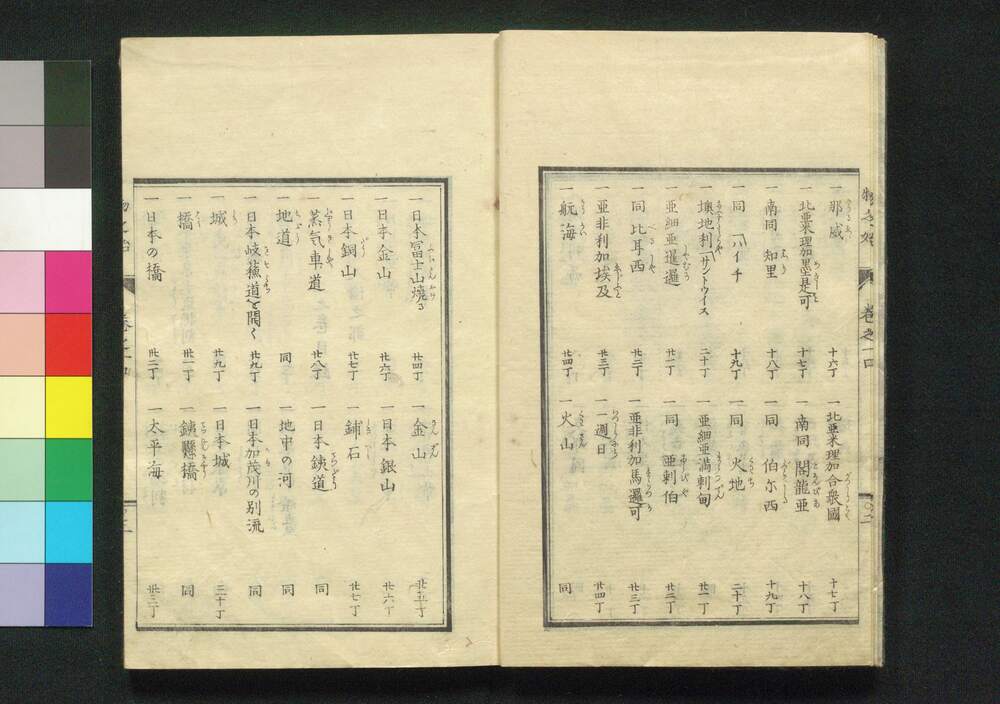 一 那威 十六丁
一 北亜米理加合衆國 十七丁
一 北亜米理加墨是可 十七丁
一 南同 閣龍亜 十八丁
一 南同 知里 十八丁
一 同 伯尓西 十九丁
一 同 ハイチ 十九丁
一 同 火地 二十丁
一 墺地利 サントウイス 二十丁
一 亜細亜満剌甸 廿一丁
一 亜細亜暹邏 廿一丁
一 同 亜剌伯 廿二丁
一 同 比耳西 廿二丁
一 亜非利加馬邏可 廿三丁
一 亜非利加埃及 廿三丁
一 一週日 廿四丁
一 航海 廿四丁
一 火山 同
一 日本冨士山焼る 廿四丁
一 金山 廿五丁
一 日本金山 廿六丁
一 日本銀山 廿六丁
一 日本銅山 廿七丁
一 鋪石 廿七丁
一 蒸気車道 廿八丁
一 日本銕道 同
一 地道 同
一 地中の河 同
一 日本岐蘓道を開く 廿九丁
一 日本加茂川の別流 同
一 城 廿九丁
一 日本城 三十丁
一 橋 丗一丁
一 銕懸橋 同
一 日本の橋 丗二丁
一 太平海 丗三丁